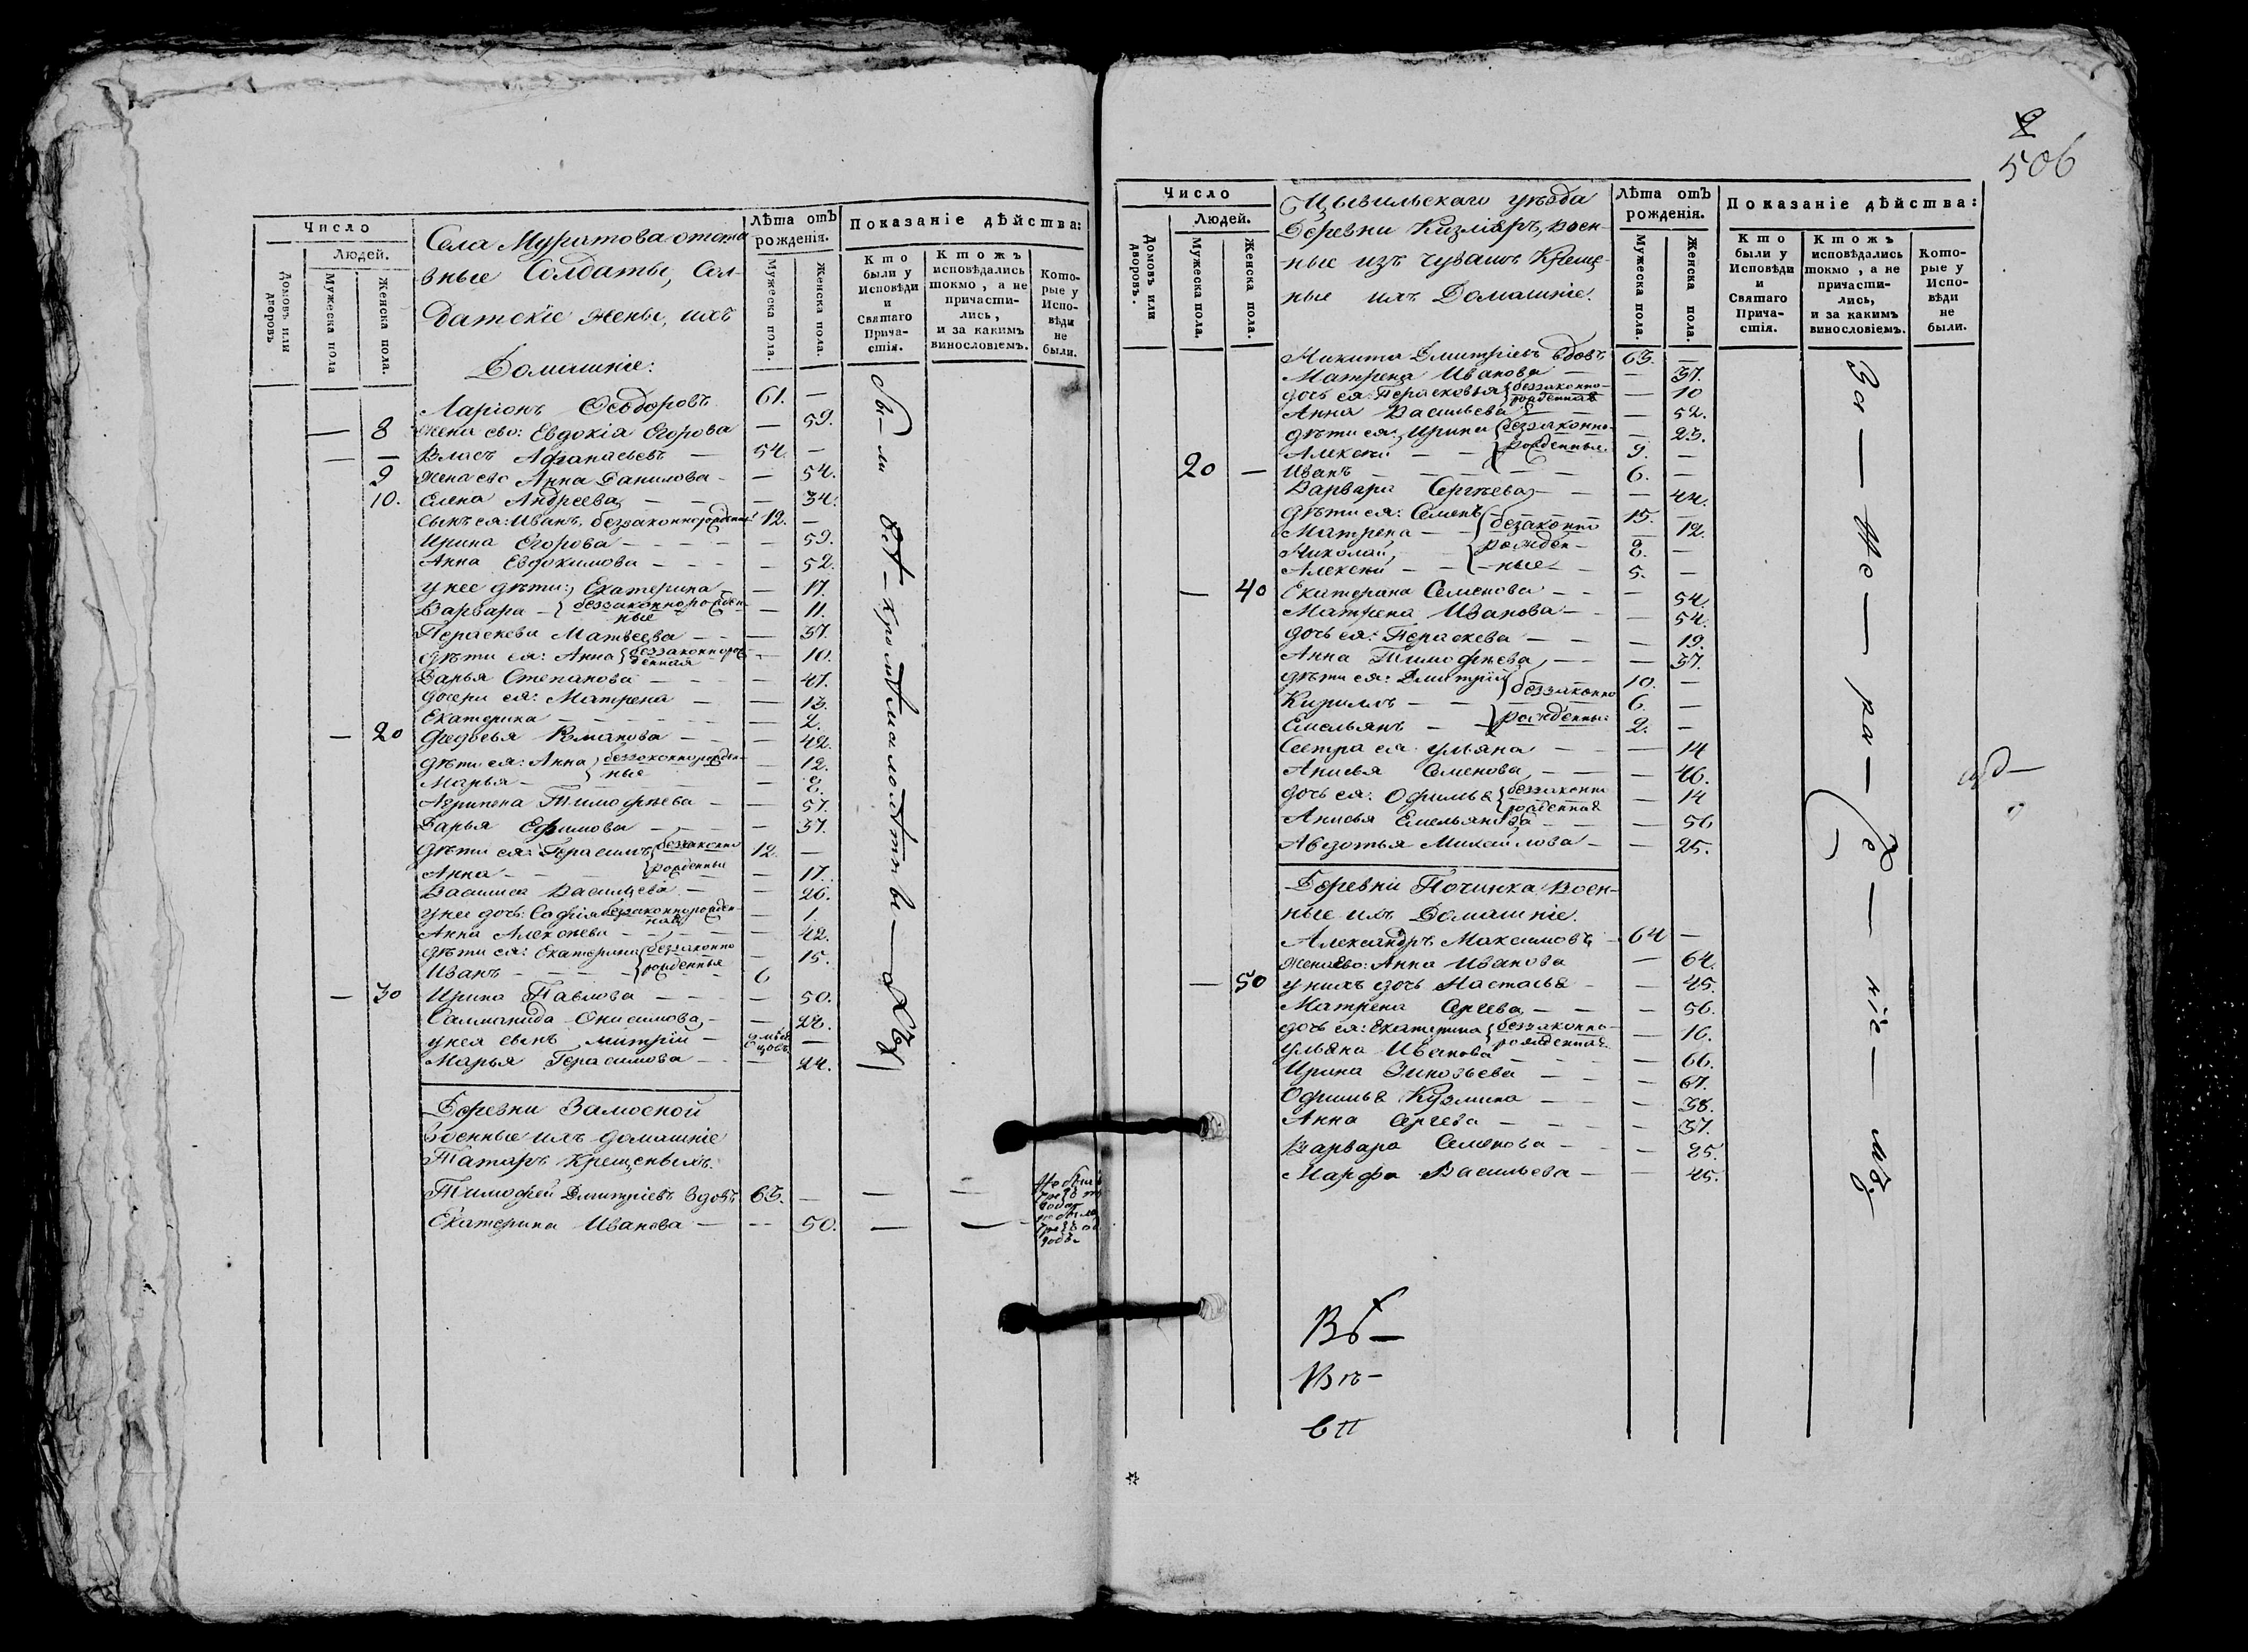 Число
Людей.
Домовъ или дворовъ
Мужеска пола
Женска пола.
Села Муратова отста
вные Солдаты, Сол-
датскіе жены, ихъ
Домашніе:
Лѣта отъ рожденія.
Мужеска пола.
Женска пола.
Показаніе дѣйства:
Кто были у Исповѣди и Святаго Прича-стія.
Ктожъ исповѣдались токмо, а не причасти-лись, и за какимъ винословіемъ.
Кото-рые у Испо-вѣди не были.
Ларіонъ Ѳеодоровъ 61. —
— 8 жена ево: Евдокія Егорова — 59.
— — Власъ Афанасьевъ — 54. —
9 жена ево Анна Данилова — — 54.
10. Елена Андреева — — — 34.
сынъ ея: Иванъ, беззаконнорожден 12. —
Ирина Егорова — — — — 59.
Анна Евдокимова — — — — 52.
у нее дѣти: Екатерина — — 17.
Варвара — беззаконнорожден
ные — 11.
Параскева Матвеева — — — 37.
дѣти ея: Анна беззаконнорож
денная — 10.
Дарья Степанова — — — 47.
дочери ея: Матрена — — 13.
Екатерина — — — — 2.
— 20 Федосья Романова — — — 42.
дѣти ея: Анна беззаконнорожден
ные — 12.
Марья — — 8.
Агрипена Тимофѣева — — 57.
Дарья Ефимова — — — 37.
дѣти ея: Герасимъ беззаконно 12. —
Анна — — — рожденныя — 17.
Василиса Васильева — — 26.
у нее дочь: Софія беззаконнорожден
ная — 1.
Анна Алексѣева — — — 42.
дѣти ея: Екатерина беззаконно — 15.
Иванъ — — — — рожденныя 6
— 30 Ирина Павлова — — — — 50.
Саламанида Онисимова — — 28.
у нея сынъ, митрій — —
Марья Герасимова — — — 24.
Деревни Замосной
военные ихъ домашніе
Татаръ Крещеныхъ.
Тимофей Дмитріевъ вдовъ 63. — — —
Екатерина Иванова — — 50. — —
506
Число
Людей.
Домовъ или дворовъ.
Мужеска пола.
Женска пола.
Цывильскаго уѣзда
Деревни Кизляръ, воен-
ные изъ чувашъ Креще-
ные ихъ Домашніе.
Лѣта отъ рожденія.
Мужеска пола.
Женска пола.
Показаніе дѣйства:
Кто были у Исповѣди и Святаго Прича-стія.
Ктожъ исповѣдались токмо, а не причасти-лись, и за какимъ винословіемъ.
Кото-рые у Испо-вѣди не были.
Никита Дмитріевъ вдовъ 63. —
Матрена Иванова — — 37.
дочь ея: Парасковья беззаконно-
рожденная — 10
Анна Васильева — — 52.
дѣти ея: Ирина беззаконно — 23.
Алексѣй — — рожденныя. 9. —
20 — Иванъ — — — — 6. —
Варвара Сергѣева — — — 44.
дѣти ея: Семенъ 15. —
Матрена — — беззаконно — 12.
Николай, рожден- 8. —
Алексѣй — — -ные — 5. —
— 40 Екатерина Семенова — — — 54.
Матрена Иванова — — — 54.
дочь ея: Параскева — — — 19.
Анна Тимофѣева — — — 37.
дѣти ея: Дмитрій беззаконно 10. —
Кирилъ — — 6. —
Емельянъ — — рожденныя 2. —
Сестра ея ульяна — — — 14
Анисья Семенова — — — 46.
дочь ея: Офимья беззаконно
рожденная — 14
Анисья Емельянова — — 56
Авдотья Михайлова — — 25.
Деревни Починка воен-
ные ихъ Домашніе.
Александръ Максимовъ — 64 —
жена ево: Анна Иванова — 64.
— 50 у нихъ дочь Настасья — — 45.
Матрена Сргева — — — 56.
дочь ея: Екатерина беззаконно-
рожденная — 16.
ульяна Иванова — — 66.
Ирина Зиновьева — — — 67.
Офимья Кузмина — — — 38.
Анна Сргева — — — 37.
Варвара Семенова — — 85.
Марфа Васильева — — 45.